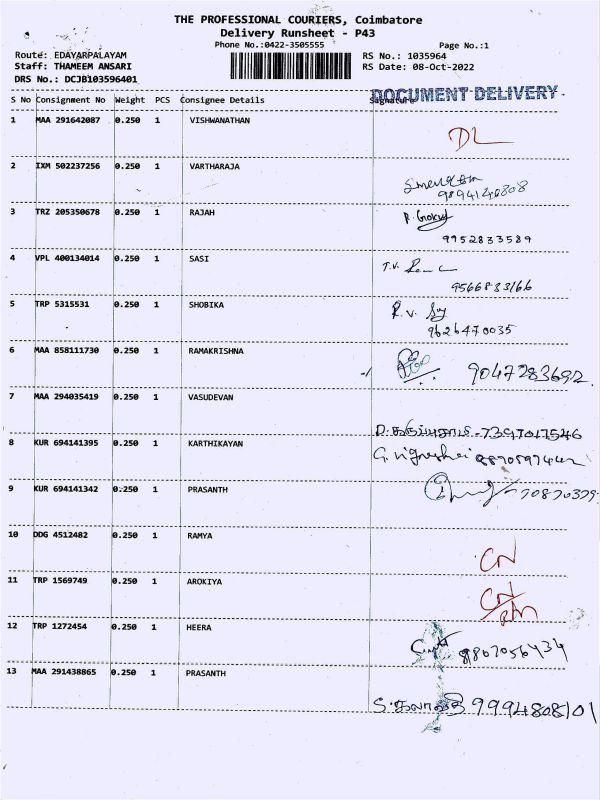 THE PROFESSIONAL COURIERS, Coimbatore
Delivery Runsheet - P43
Phone No.:0422-3505555 Page No.:1
Route: EDAYARPALAYAM RS No.: 1035964
Staff: THAMEEM ANSARI RS Date: 08-Oct-2022
DRS No.: DCJB103596401
DOCUMENT DELIVERY
S No Consignment No Weight PCS Consignee Details Signature
1 MAA 291642087 0.250 1 VISHWANATHAN
DL
2 IXM 502237256 0.250 1 VARTHARAJA
9894146808
3 TRZ 205350678 0.250 1 RAJAH P. Gokul
9952833589
4 VPL 400134014 0.250 1 SASI T.V.
9566883166
5 TRP 5315531 0.250 1 SHOBIKA R.V.
9626470035
6 MAA 858111730 0.250 1 RAMAKRISHNA
9047283692
7 MAA 294035419 0.250 1 VASUDEVAN
D.கருப்புசாமி-7397017546
8 KUR 694141395 0.250 1 KARTHIKAYAN
9 KUR 694141342 0.250 1 PRASANTH
10 DDG 4512482 0.250 1 RAMYA
CN
11 TRP 1569749 0.250 1 AROKIYA
CN
12 TRP 1272454 0.250 1 HEERA
8807056434
13 MAA 291438865 0.250 1 PRASANTH
S.கலாவதி 9994808101